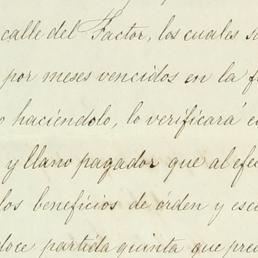 calle del Factor, los cuales s
por meses vencidos en la f
o haciéndolo, lo verificará e
y llano pagador que al efe
los beneficios de órden y esc
doce partida quinta que pre